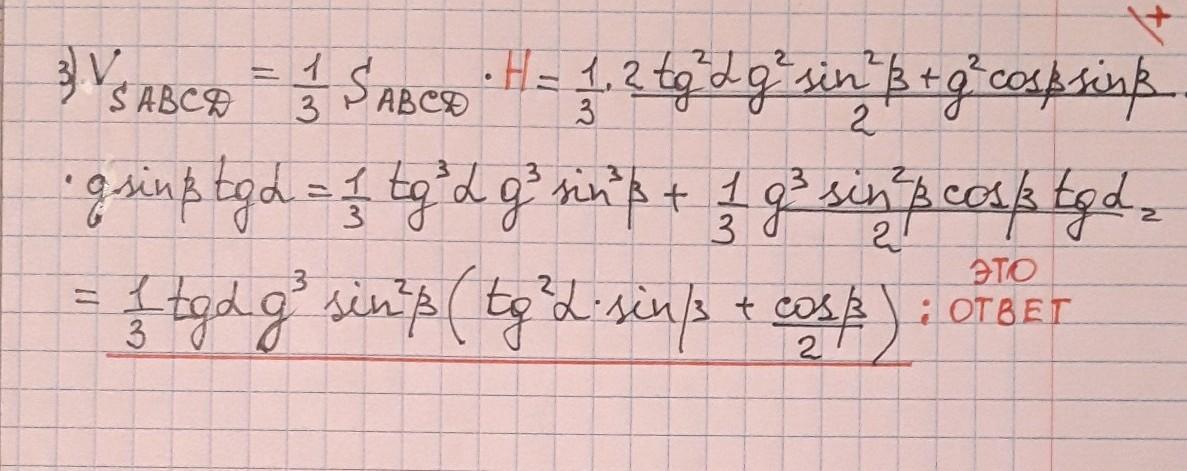 \+
3) V_SABCD = 1/3 S_ABCD · H = 1/3 · (2 tg²α g² sin²β + g² cosβ sinβ)/2 ·
· g sinβ tgα = 1/3 tg³α g³ sin³β + 1/3 (g³ sin²β cosβ tgα)/2 =
= 1/3 tgα g³ sin²β (tg²α · sinβ + cosβ/2) : ЭТО ОТВЕТ